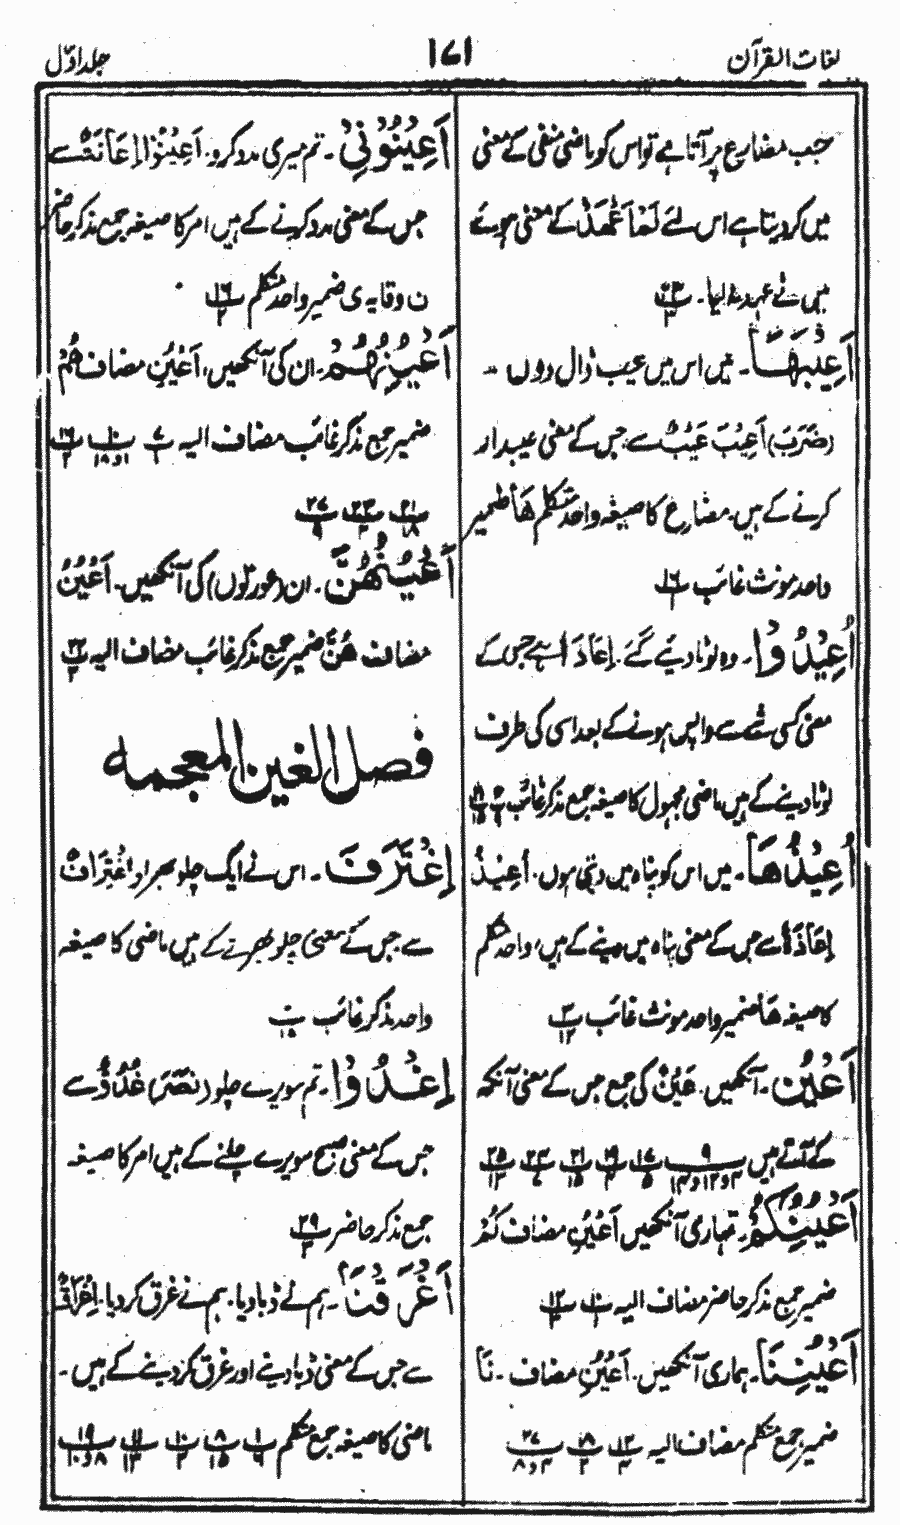 لغات القرآن
١٧١
جلد اوّل
جب مضارع پر آتا ہے تو اس کو ماضی منفی کے معنی
میں کر دیتا ہے اس لئے لَمْ اَعْهَدْ کے معنی ہوئے
میں نے عہد نہ لیا۔
اَعِيْبَهَا۔ میں اس میں عیب ڈال دوں
(ضَرَبَ) اَعِيْبَ عَيْبٌ سے جس کے معنی عیبدار
کرنے کے ہیں۔ مضارع کا صیغہ واحد متکلم هَا ضمیر
واحد مونث غائب ١٦
اُعِيْدُوْا۔ وہ لوٹا دیئے گئے۔ اِعَادَةٌ سے جس کے
معنی کسی شے سے واپس ہونے کے بعد اسی کی طرف
لوٹا دینے کے ہیں ماضی مجہول کا صیغہ جمع مذکر غائب
اُعِيْذُهَا۔ میں اس کو پناہ میں دیتی ہوں۔ اُعِيْذُ
اِعَاذَةٌ سے جس کے معنی پناہ میں دینے کے ہیں، واحد متکلم
کا صیغہ هَا ضمیر واحد مونث غائب ٣ ١٢
اَعْيُنٌ۔ آنکھیں۔ عَيْنٌ کی جمع جس کے معنی آنکھ
کے آتے ہیں
اَعْيُنِكُمْ۔ تمہاری آنکھیں اَعْيُنِ مضاف كُمْ
ضمیر جمع مذکر حاضر مضاف الیہ
اَعْيُنِنَا۔ ہماری آنکھیں۔ اَعْيُنِ مضاف۔ نَا
ضمیر جمع متکلم مضاف الیہ
اَعِيْنُوْنِيْ۔ تم میری مدد کرو۔ اَعِيْنُوْا اِعَانَةٌ سے
جس کے معنی مدد کرنے کے ہیں امر کا صیغہ جمع مذکر حاضر
ن وقایہ ی ضمیر واحد متکلم ١٦ ٢
اَعْيُنُهُمْ۔ ان کی آنکھیں، اَعْيُنِ مضاف هُمْ
ضمیر جمع مذکر غائب مضاف الیہ
٢١ ١٨ ٢٣ ٣ ٢٧ ٩
اَعْيُنُهُنَّ۔ ان (عورتوں) کی آنکھیں۔ اَعْيُنُ
مضاف هُنَّ ضمیر جمع مذکر غائب مضاف الیہ ٢٢
فصل الغین المعجمہ
اِغْتَرَفَ۔ اس نے ایک چلو بھرا۔ اِغْتِرَافٌ
سے جس کے معنی چلو بھرنے کے ہیں ماضی کا صیغہ
واحد مذکر غائب
اِغْدُوْا۔ تم سویرے چلو (نَصَرَ) غُدُوٌّ سے
جس کے معنی صبح سویرے چلنے کے ہیں امر کا صیغہ
جمع مذکر حاضر ٢٩ ٣
اَغْرَقْنَا۔ ہم نے ڈبا دیا۔ ہم نے غرق کر دیا۔ اِغْرَاقٌ
سے جس کے معنی ڈبا دینے اور غرق کر دینے کے ہیں۔
ماضی کا صیغہ جمع متکلم